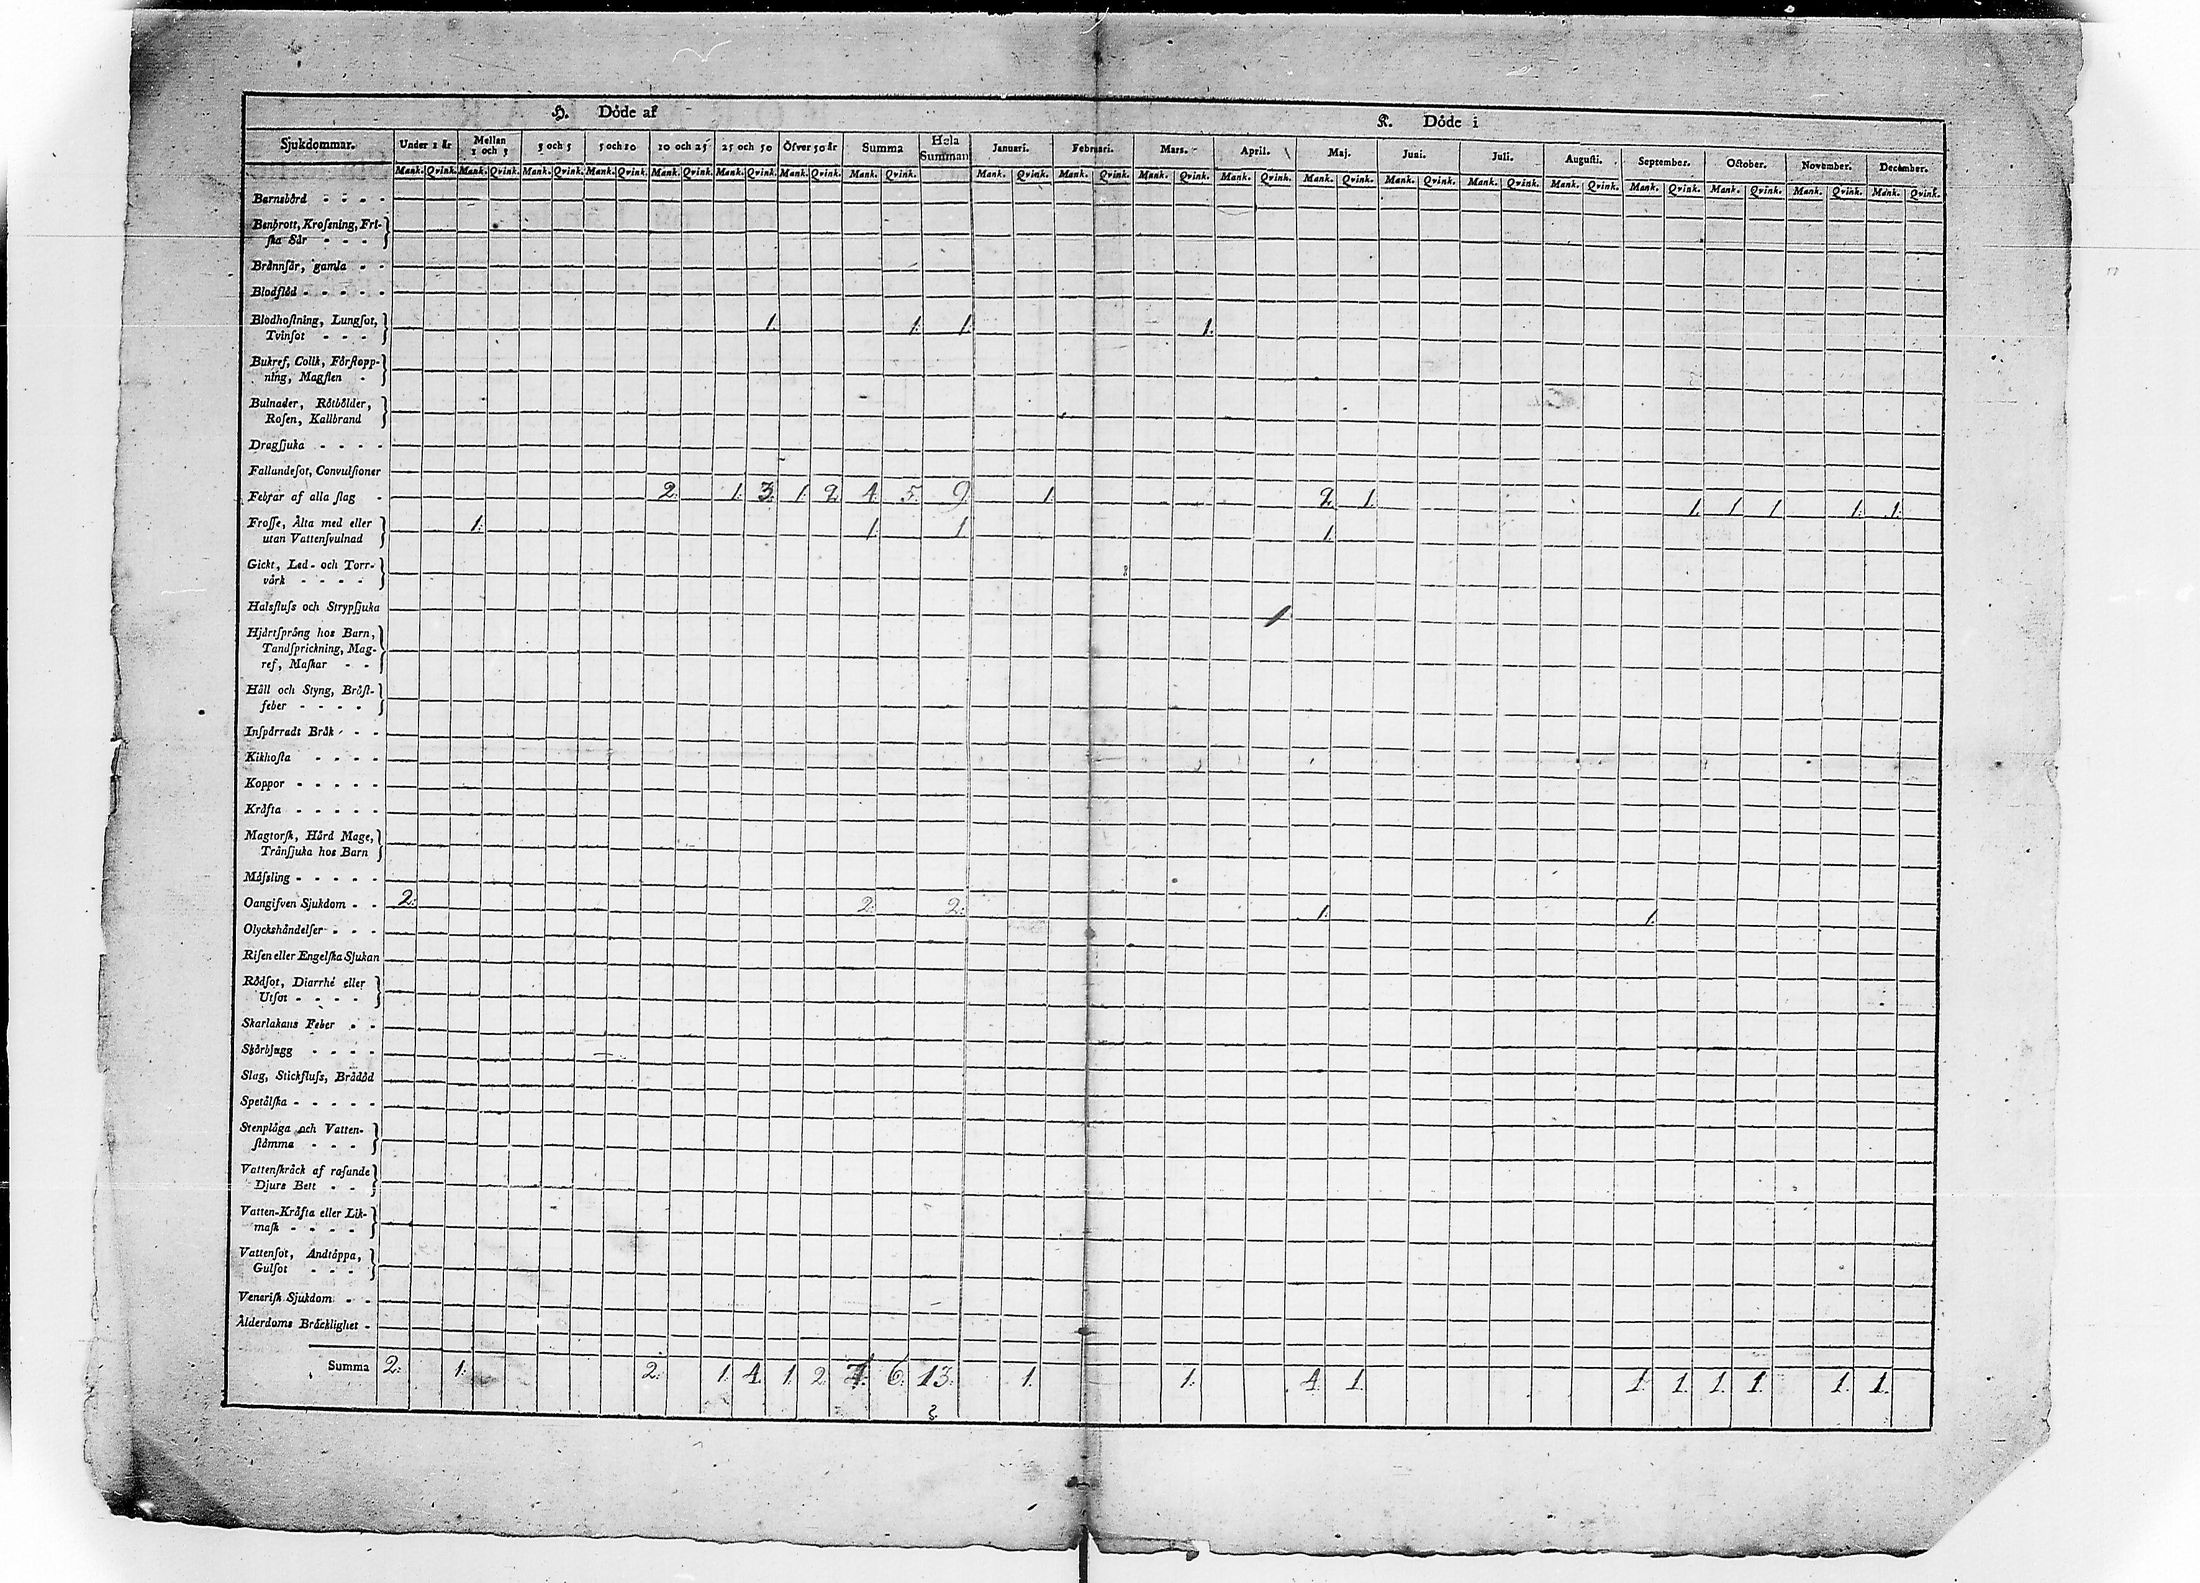 H. Döde af
K. Döde i
Sjukdommar. Under 1 år Mellan 1 och 3 3 och 5 5 och 10 10 och 25 25 och 50 Öfver 50 år Summa Hela Summan Januari. Februari. Mars. April. Maj. Juni. Juli. Augusti. September. October. November. December.
Mank. Qvink. Mank. Qvink. Mank. Qvink. Mank. Qvink. Mank. Qvink. Mank. Qvink. Mank. Qvink. Mank. Qvink. Mank. Qvink. Mank. Qvink. Mank. Qvink. Mank. Qvink. Mank. Qvink. Mank. Qvink. Mank. Qvink. Mank. Qvink. Mank. Qvink. Mank. Qvink. Mank. Qvink. Mank. Qvink.
Barnsbörd
Benbrott, Krossning, Fri-
ska Sår
Brännsår, gamla
Blodflöd
Blodhostning, Lungsot, 1. 1. 1. 1.
Tvinsot
Bukref, Colik, Förstopp-
ning, Magsten
Bulnader, Rötbölder,
Rosen, Kallbrand
Dragsjuka
Fallandesot, Convulsioner
Febrar af alla slag 2. 1. 3. 1. 2. 4. 5. 9. 1. 2. 1. 1. 1 1 1. 1.
Frosse, Älta med eller 1. 1. 1 1.
utan Vattensvulnad
Gickt, Led- och Torr-
värk
Halsfluss och Strypsjuka
1
Hjärtsprång hos Barn,
Tandsprickning, Mag-
ref, Maskar
Håll och Styng, Bröst-
feber
Inspärradt Bråk
Kikhosta
Koppor
Kräfta
Magtorsk, Hård Mage,
Tränsjuka hos Barn
Mässling
Oangifven Sjukdom 2. 2. 2. 1. 1.
Olyckshändelser
Risen eller Engelska Sjukan
Rödsot, Diarrhé eller
Utsot
Skarlakans Feber
Skörbjugg
Slag, Stickfluss, Brådöd
Spetälska
Stenplåga och Vatten-
stämma
Vattenskräck af rasande
Djurs Bett
Vatten-Kräfta eller Lik-
mask
Vattensot, Andtäppa,
Gulsot
Venerisk Sjukdom
Ålderdoms Bräcklighet
Summa 2. 1. 2. 1. 4. 1. 2. 7. 6. 13. 1. 1. 4. 1. 1. 1. 1. 1. 1. 1.